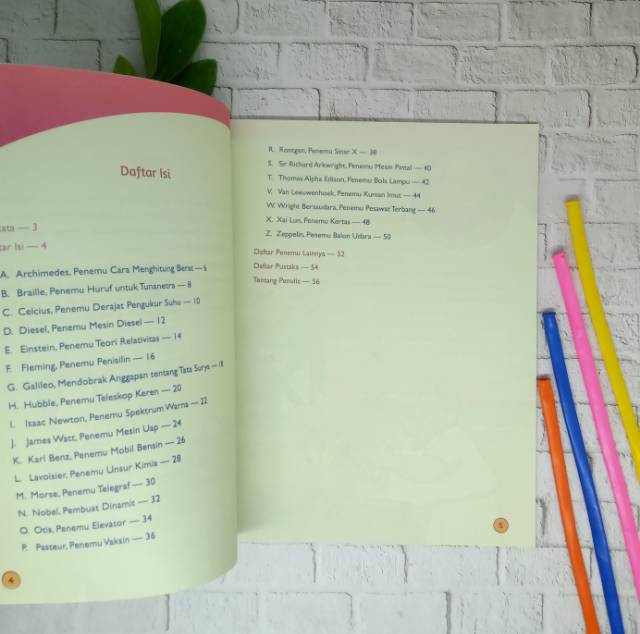 Daftar Isi
ata — 3
ar Isi — 4
A. Archimedes, Penemu Cara Menghitung Berat — 6
B. Braille, Penemu Huruf untuk Tunanetra — 8
C. Celcius, Penemu Derajat Pengukur Suhu — 10
D. Diesel, Penemu Mesin Diesel — 12
E. Einstein, Penemu Teori Relativitas — 14
F. Fleming, Penemu Penisilin — 16
G. Galileo, Mendobrak Anggapan tentang Tata Surya — 18
H. Hubble, Penemu Teleskop Keren — 20
I. Isaac Newton, Penemu Spektrum Warna — 22
J. James Watt, Penemu Mesin Uap — 24
K. Karl Benz, Penemu Mobil Bensin — 26
L. Lavoisier, Penemu Unsur Kimia — 28
M. Morse, Penemu Telegraf — 30
N. Nobel, Pembuat Dinamit — 32
O. Otis, Penemu Elevator — 34
P. Pasteur, Penemu Vaksin — 36
4
R. Rontgen, Penemu Sinar X — 38
S. Sir Richard Arkwright, Penemu Mesin Pintal — 40
T. Thomas Alpha Edison, Penemu Bola Lampu — 42
V. Van Leeuwenhoek, Penemu Kuman Imut — 44
W. Wright Bersaudara, Penemu Pesawat Terbang — 46
X. Xai Lun, Penemu Kertas — 48
Z. Zeppelin, Penemu Balon Udara — 50
Daftar Penemu Lainnya — 52
Daftar Pustaka — 54
Tentang Penulis — 56
5